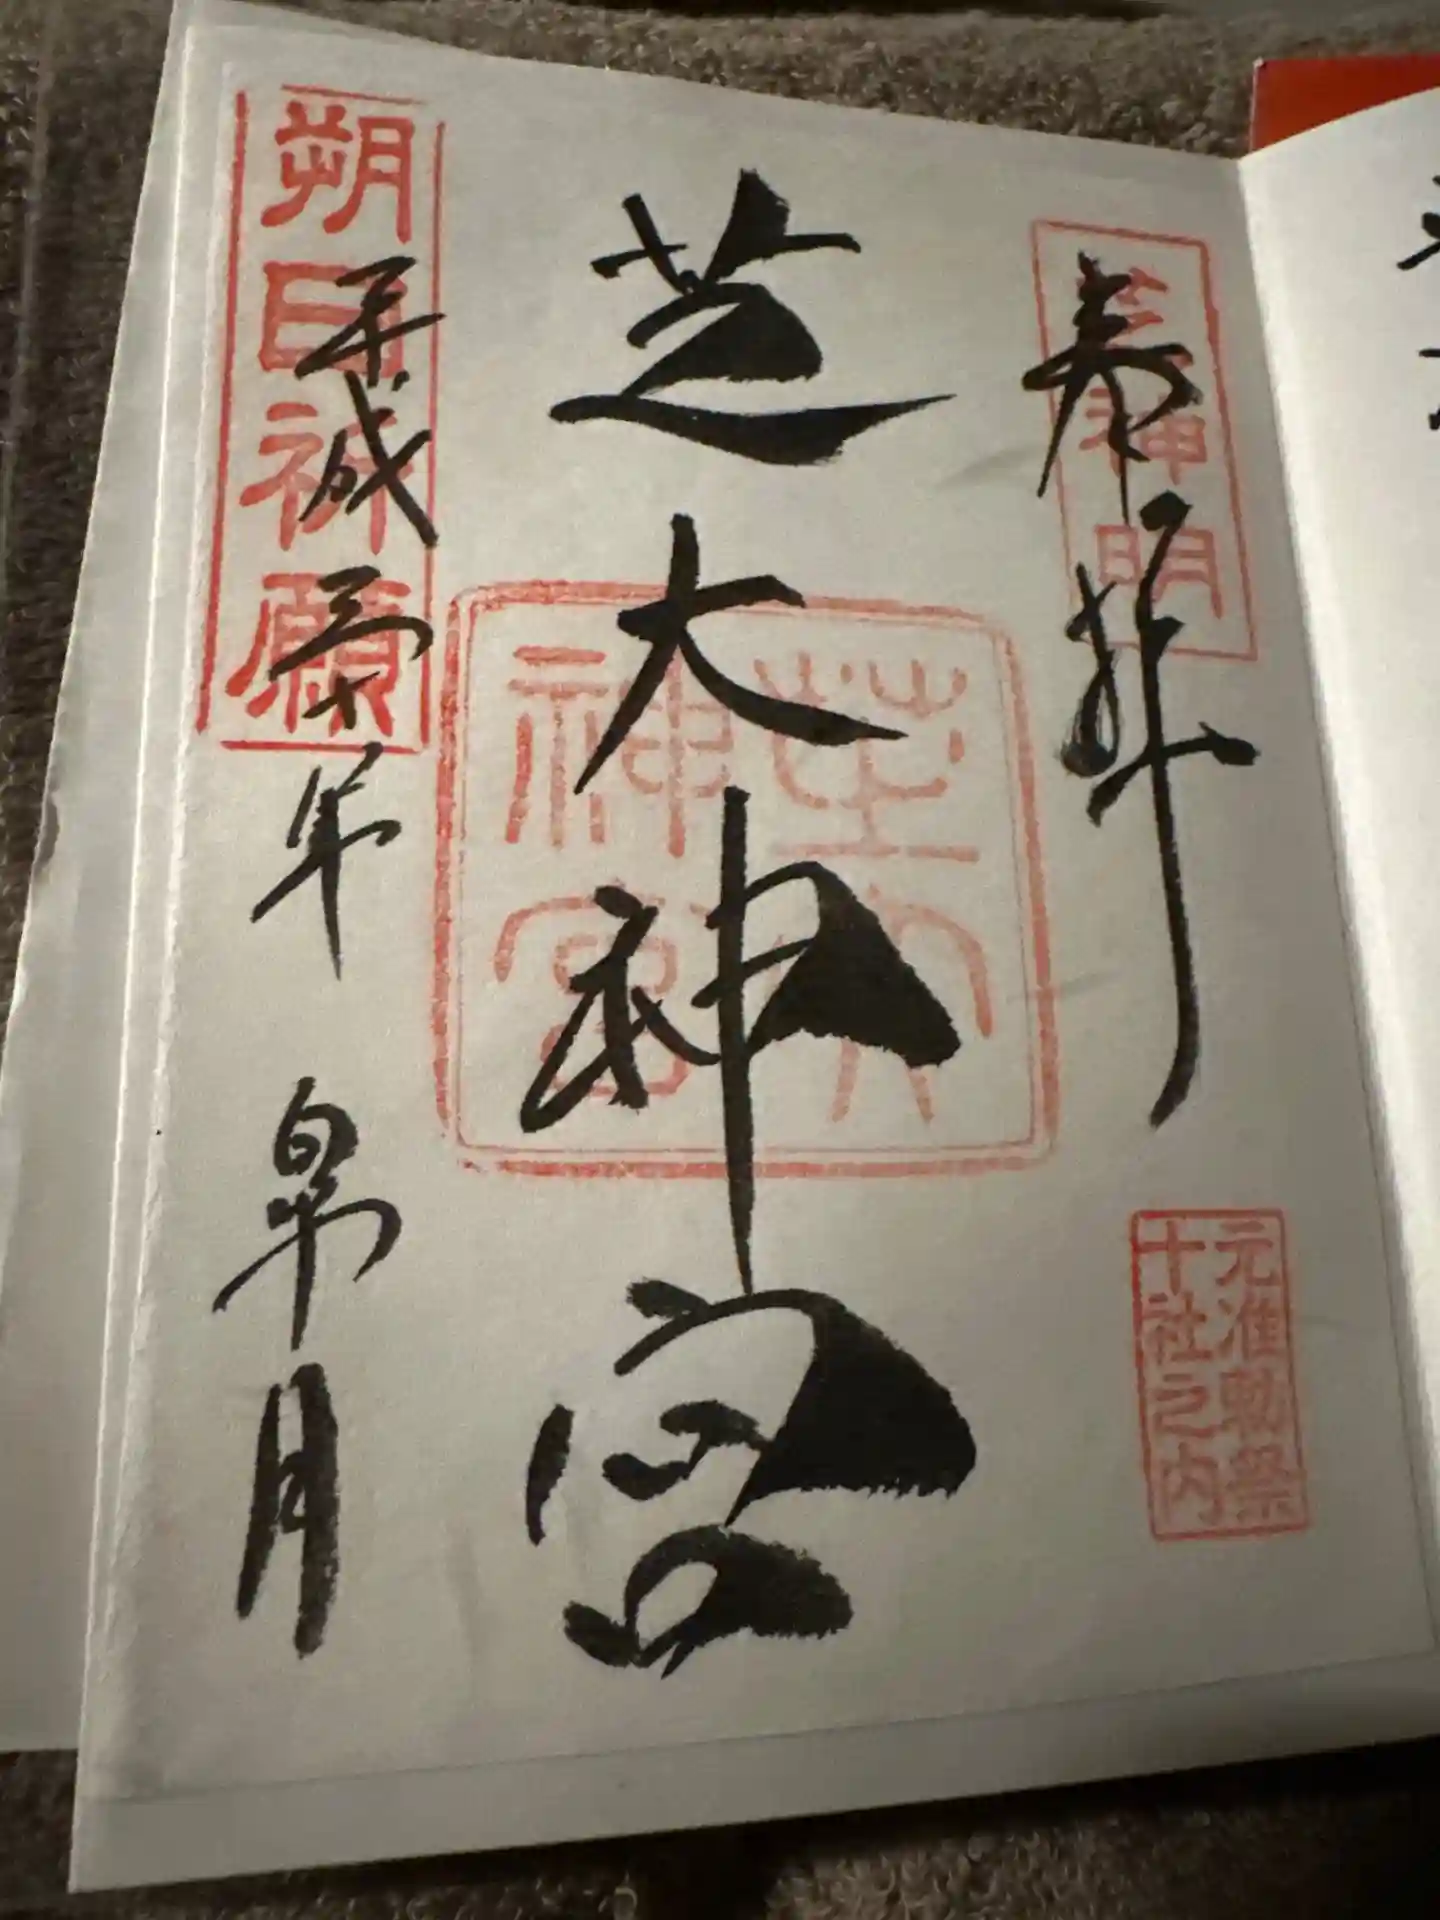 奉拝
芝神明
元准勅祭
十社之内
芝大神宮
芝大
神宮
朔日祈願
平成三十年 皐月